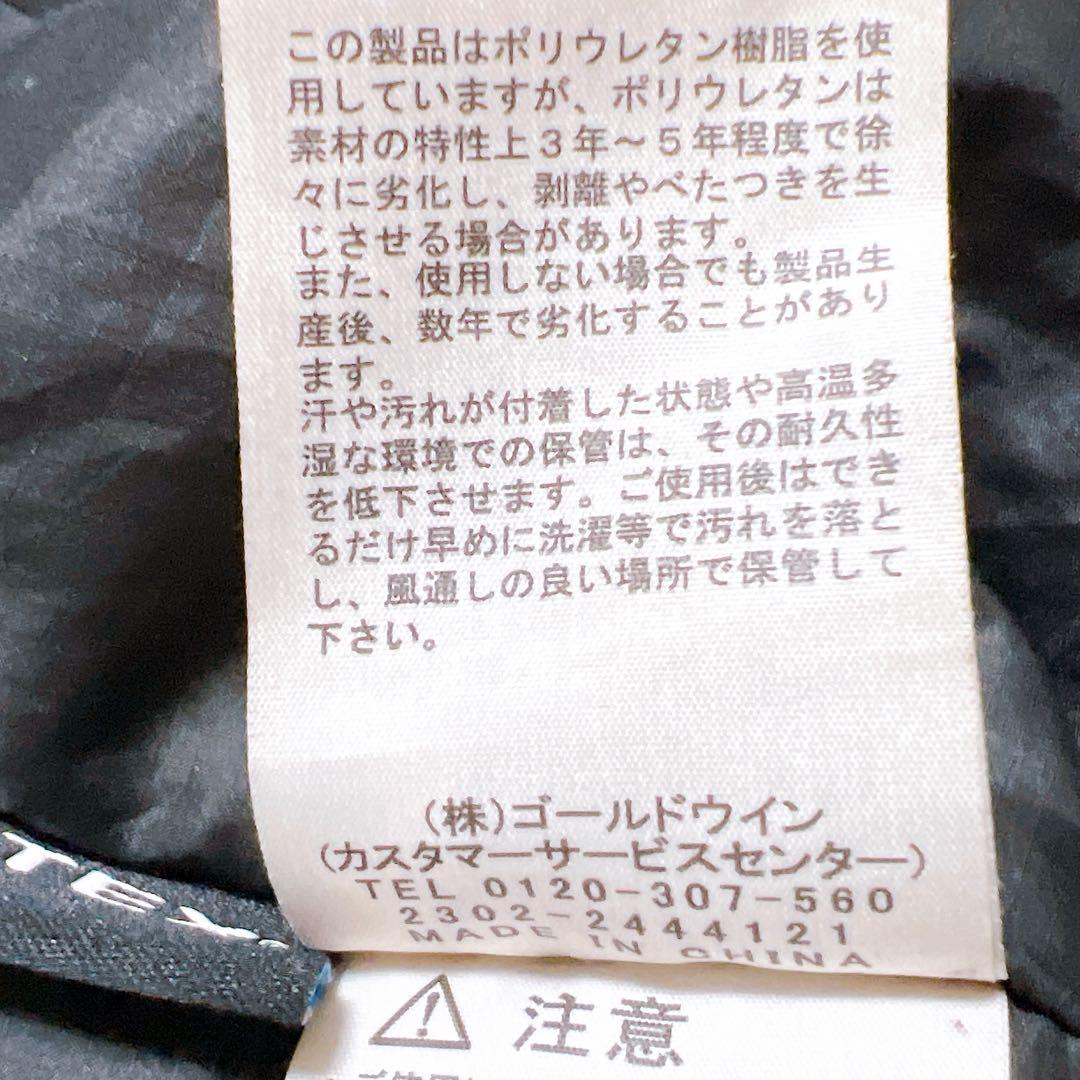 この製品はポリウレタン樹脂を使
用していますが、ポリウレタンは
素材の特性上3年～5年程度で徐
々に劣化し、剥離やべたつきを生
じさせる場合があります。
また、使用しない場合でも製品生
産後、数年で劣化することがあり
ます。
汗や汚れが付着した状態や高温多
湿な環境での保管は、その耐久性
を低下させます。ご使用後はでき
るだけ早めに洗濯等で汚れを落と
し、風通しの良い場所で保管して
下さい。
(株)ゴールドウイン
(カスタマーサービスセンター)
TEL 0120-307-560
2302-2444121
MADE IN CHINA
TEX
⚠ 注意